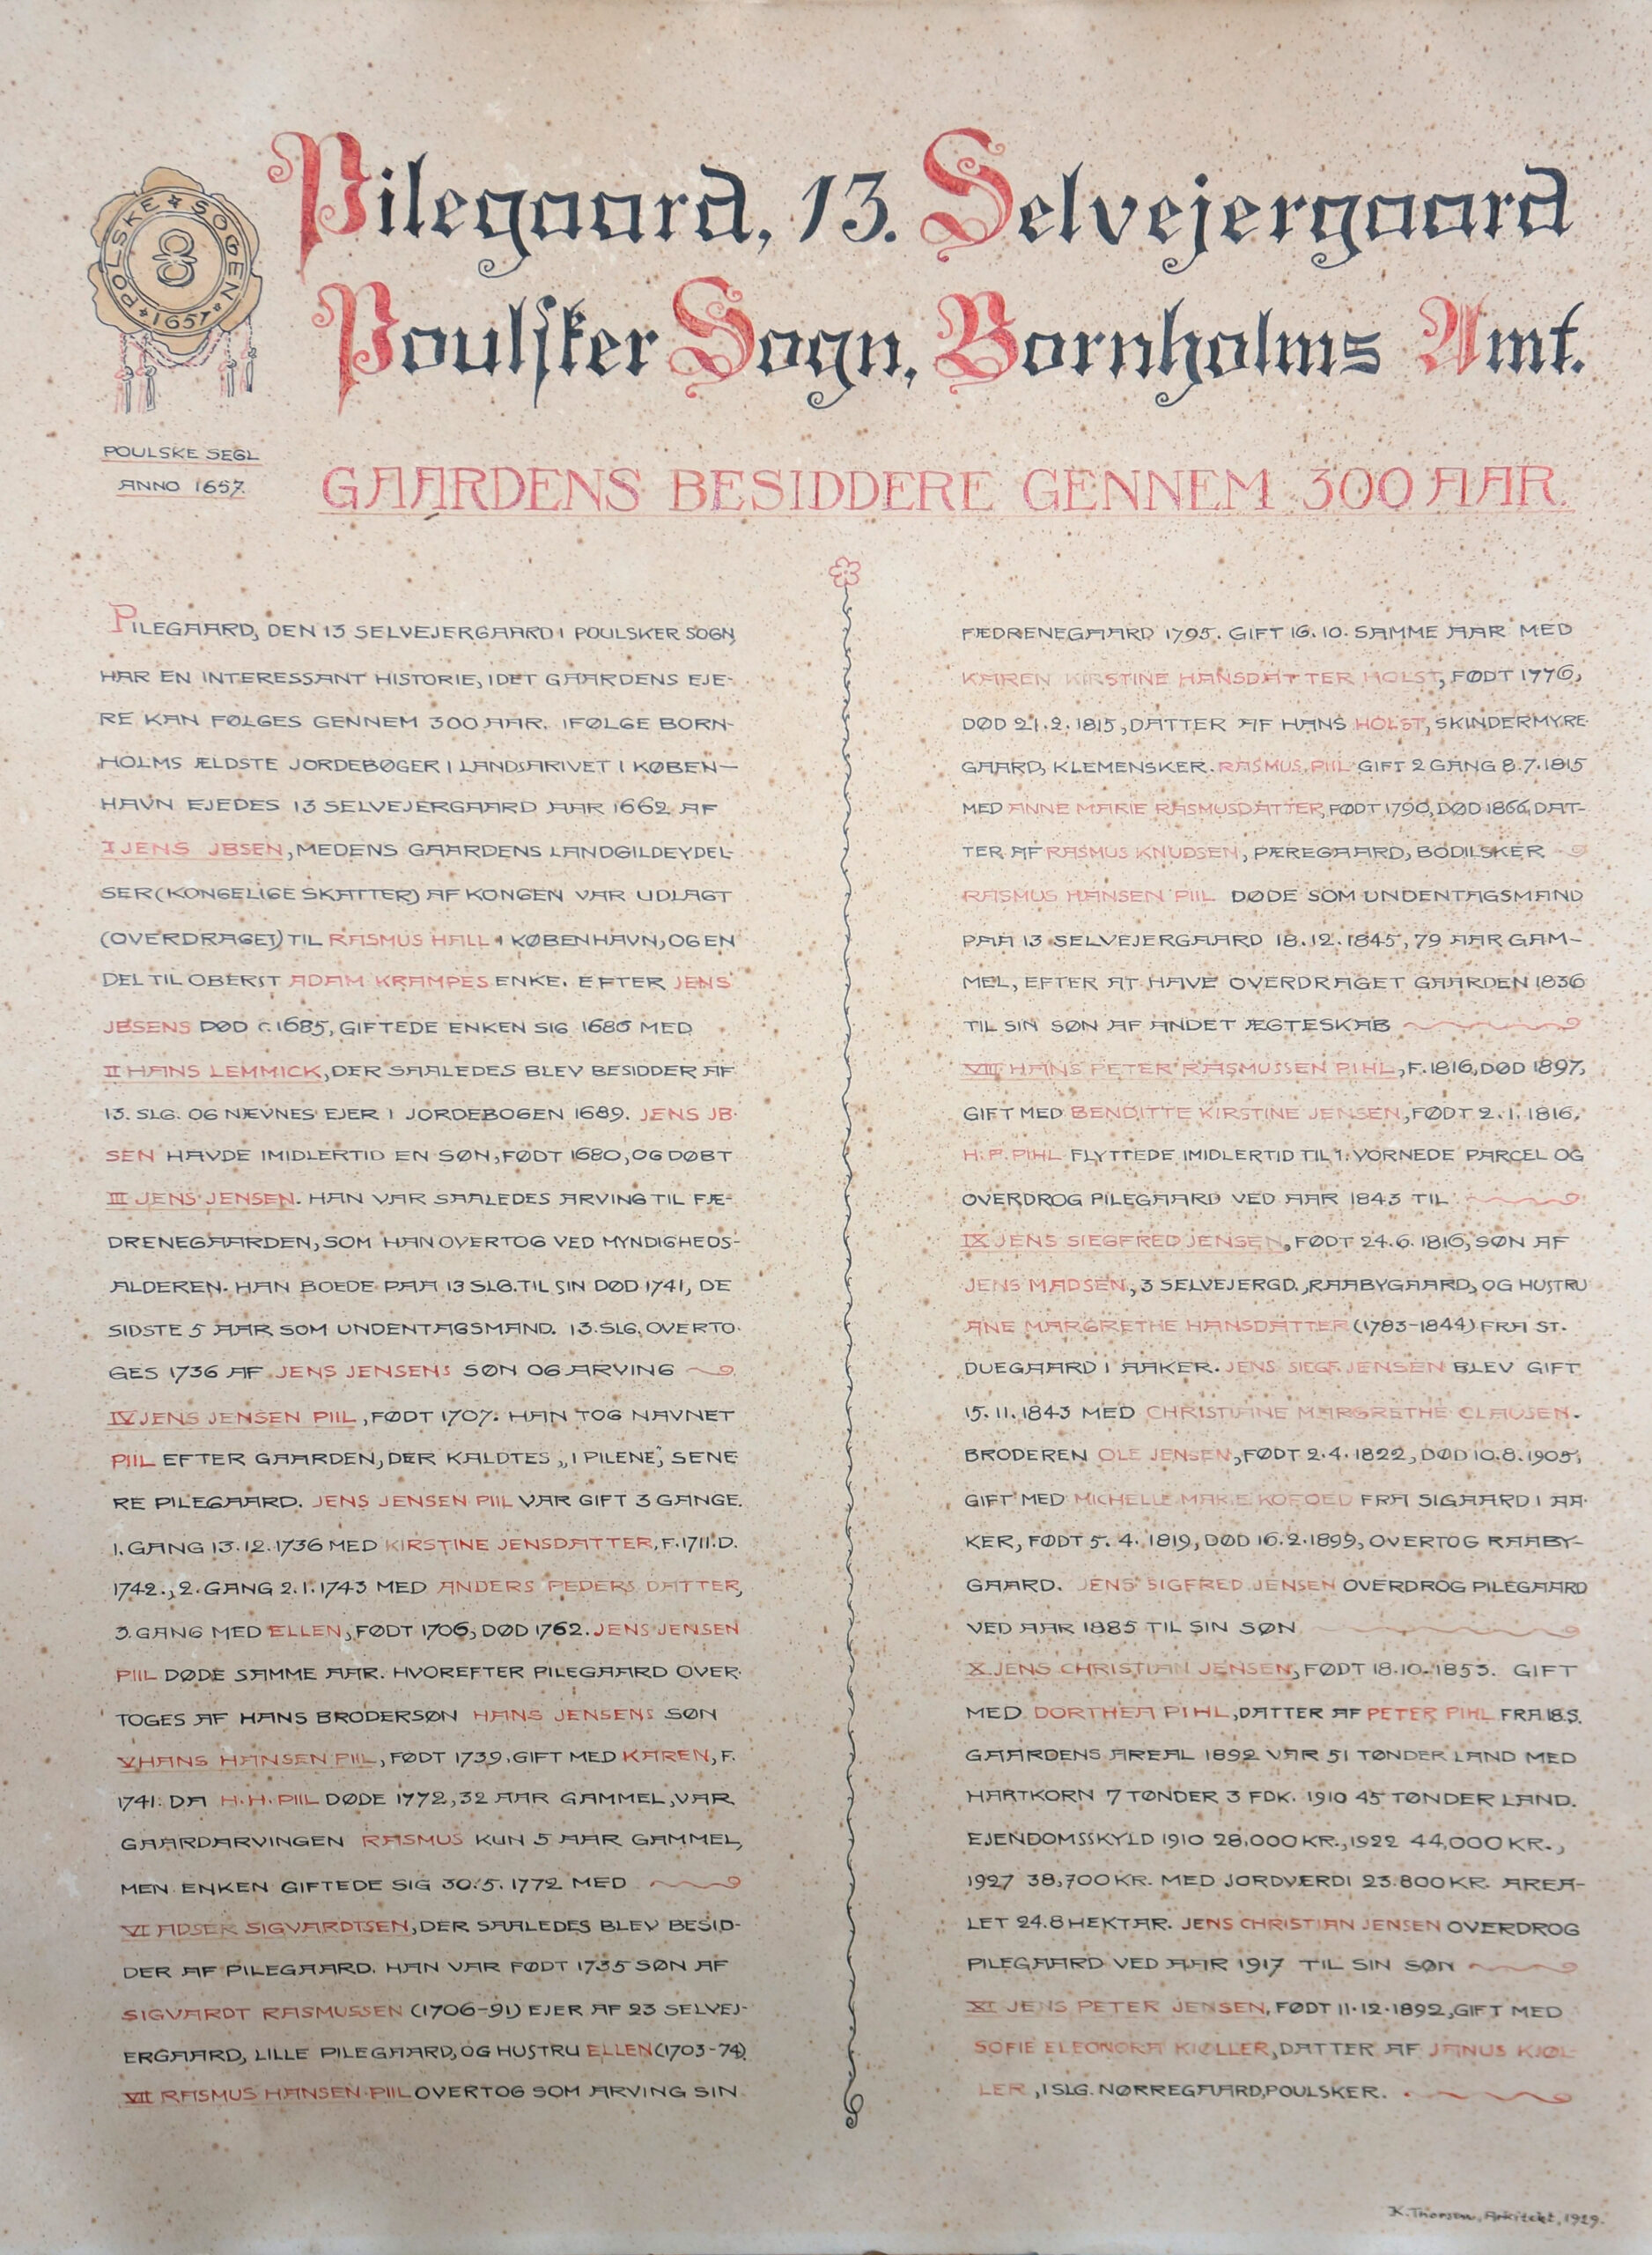 Pilegaard, 13. Selvejergaard
Poulsker Sogn, Bornholms Amt.
POLSKE SOGEN
1657
8
POULSKE SEGL
ANNO 1657.
GAARDENS BESIDDERE GENNEM 300 AAR.
PILEGAARD, DEN 13 SELVEJERGAARD I POULSKER SOGN,
HAR EN INTERESSANT HISTORIE, IDET GAARDENS EJE-
RE KAN FØLGES GENNEM 300 AAR. IFØLGE BORN-
HOLMS ÆLDSTE JORDEBØGER I LANDSARIVET I KØBEN-
HAVN EJEDES 13 SELVEJERGAARD AAR 1662 AF
I JENS JBSEN, MEDENS GAARDENS LANDGILDEYDEL-
SER (KONGELIGE SKATTER) AF KONGEN VAR UDLAGT
(OVERDRAGET) TIL RASMUS HALL I KØBENHAVN, OG EN
DEL TIL OBERST ADAM KRAMPES ENKE. EFTER JENS
JBSENS DØD C. 1685, GIFTEDE ENKEN SIG 1686 MED
II HANS LEMMICK, DER SAALEDES BLEV BESIDDER AF
13. SLG. OG NÆVNES EJER I JORDEBOGEN 1689. JENS JB-
SEN HAVDE IMIDLERTID EN SØN, FØDT 1680, OG DØBT
III JENS JENSEN. HAN VAR SAALEDES ARVING TIL FÆ-
DRENEGAARDEN, SOM HAN OVERTOG VED MYNDIGHEDS-
ALDEREN. HAN BOEDE PAA 13 SLG. TIL SIN DØD 1741, DE
SIDSTE 5 AAR SOM UNDENTAGSMAND. 13. SLG. OVERTO-
GES 1736 AF JENS JENSENS SØN OG ARVING
IV JENS JENSEN PIIL, FØDT 1707. HAN TOG NAVNET
PIIL EFTER GAARDEN, DER KALDTES „I PILENE”, SENE-
RE PILEGAARD. JENS JENSEN PIIL VAR GIFT 3 GANGE.
1. GANG 13.12.1736 MED KIRSTINE JENSDATTER, F. 1711. D.
1742., 2. GANG 2.1.1743 MED ANDERS PEDERS DATTER,
3. GANG MED ELLEN, FØDT 1706, DØD 1762. JENS JENSEN
PIIL DØDE SAMME AAR. HVOREFTER PILEGAARD OVER-
TOGES AF HANS BRODERSØN HANS JENSENS SØN
V HANS HANSEN PIIL, FØDT 1739, GIFT MED KAREN, F.
1741. DA H. H. PIIL DØDE 1772, 32 AAR GAMMEL, VAR
GAARDARVINGEN RASMUS KUN 5 AAR GAMMEL,
MEN ENKEN GIFTEDE SIG 30.5.1772 MED
VI ADSER SIGVARDTSEN, DER SAALEDES BLEV BESID-
DER AF PILEGAARD. HAN VAR FØDT 1735 SØN AF
SIGVARDT RASMUSSEN (1706-91) EJER AF 23 SELVEJ-
ERGAARD, LILLE PILEGAARD, OG HUSTRU ELLEN (1703-74).
VII RASMUS HANSEN PIIL OVERTOG SOM ARVING SIN
FÆDRENEGAARD 1795. GIFT 16.10. SAMME AAR MED
KAREN KIRSTINE HANSDATTER HOLST, FØDT 1776,
DØD 21.2.1815, DATTER AF HANS HOLST, SKINDERMYRE-
GAARD, KLEMENSKER. RASMUS PIIL GIFT 2 GANG 8.7.1815
MED ANNE MARIE RASMUSDATTER, FØDT 1790, DØD 1866, DAT-
TER AF RASMUS KNUDSEN, PÆREGAARD, BODILSKER
RASMUS HANSEN PIIL DØDE SOM UNDENTAGSMAND
PAA 13 SELVEJERGAARD 18.12.1845, 79 AAR GAM-
MEL, EFTER AT HAVE OVERDRAGET GAARDEN 1836
TIL SIN SØN AF ANDET ÆGTESKAB
VIII HANS PETER RASMUSSEN PIHL, F. 1816, DØD 1897,
GIFT MED BENDITTE KIRSTINE JENSEN, FØDT 2.1.1816.
H. P. PIHL FLYTTEDE IMIDLERTID TIL 1. VORNEDE PARCEL OG
OVERDROG PILEGAARD VED AAR 1843 TIL
IX JENS SIEGFRED JENSEN, FØDT 24.6.1816, SØN AF
JENS MADSEN, 3 SELVEJERGD., RAABYGAARD, OG HUSTRU
ANE MARGRETHE HANSDATTER (1783-1844) FRA ST.
DUEGAARD I AAKER. JENS SIEGF. JENSEN BLEV GIFT
15.11.1843 MED CHRISTIANE MARGRETHE CLAUSEN.
BRODEREN OLE JENSEN, FØDT 2.4.1822, DØD 10.8.1905,
GIFT MED MICHELLE MARIE KOFOED FRA SIGAARD I AA-
KER, FØDT 5.4.1819, DØD 16.2.1899, OVERTOG RAABY-
GAARD. JENS SIGFRED JENSEN OVERDROG PILEGAARD
VED AAR 1885 TIL SIN SØN
X JENS CHRISTIAN JENSEN, FØDT 18.10.1853. GIFT
MED DORTHEA PIHL, DATTER AF PETER PIHL FRA 18 S.
GAARDENS AREAL 1892 VAR 51 TØNDER LAND MED
HARTKORN 7 TØNDER 3 FDK. 1910 45 TØNDER LAND.
EJENDOMSSKYLD 1910 28,000 KR., 1922 44,000 KR.,
1927 38,700 KR. MED JORDVÆRDI 23.800 KR. AREA-
LET 24.8 HEKTAR. JENS CHRISTIAN JENSEN OVERDROG
PILEGAARD VED AAR 1917 TIL SIN SØN
XI JENS PETER JENSEN, FØDT 11.12.1892, GIFT MED
SOFIE ELEONORA KIØLLER, DATTER AF JANUS KJØL-
LER, 1 SLG. NØRREGAARD, POULSKER.
K. Thorsen, Arkitekt, 1929.